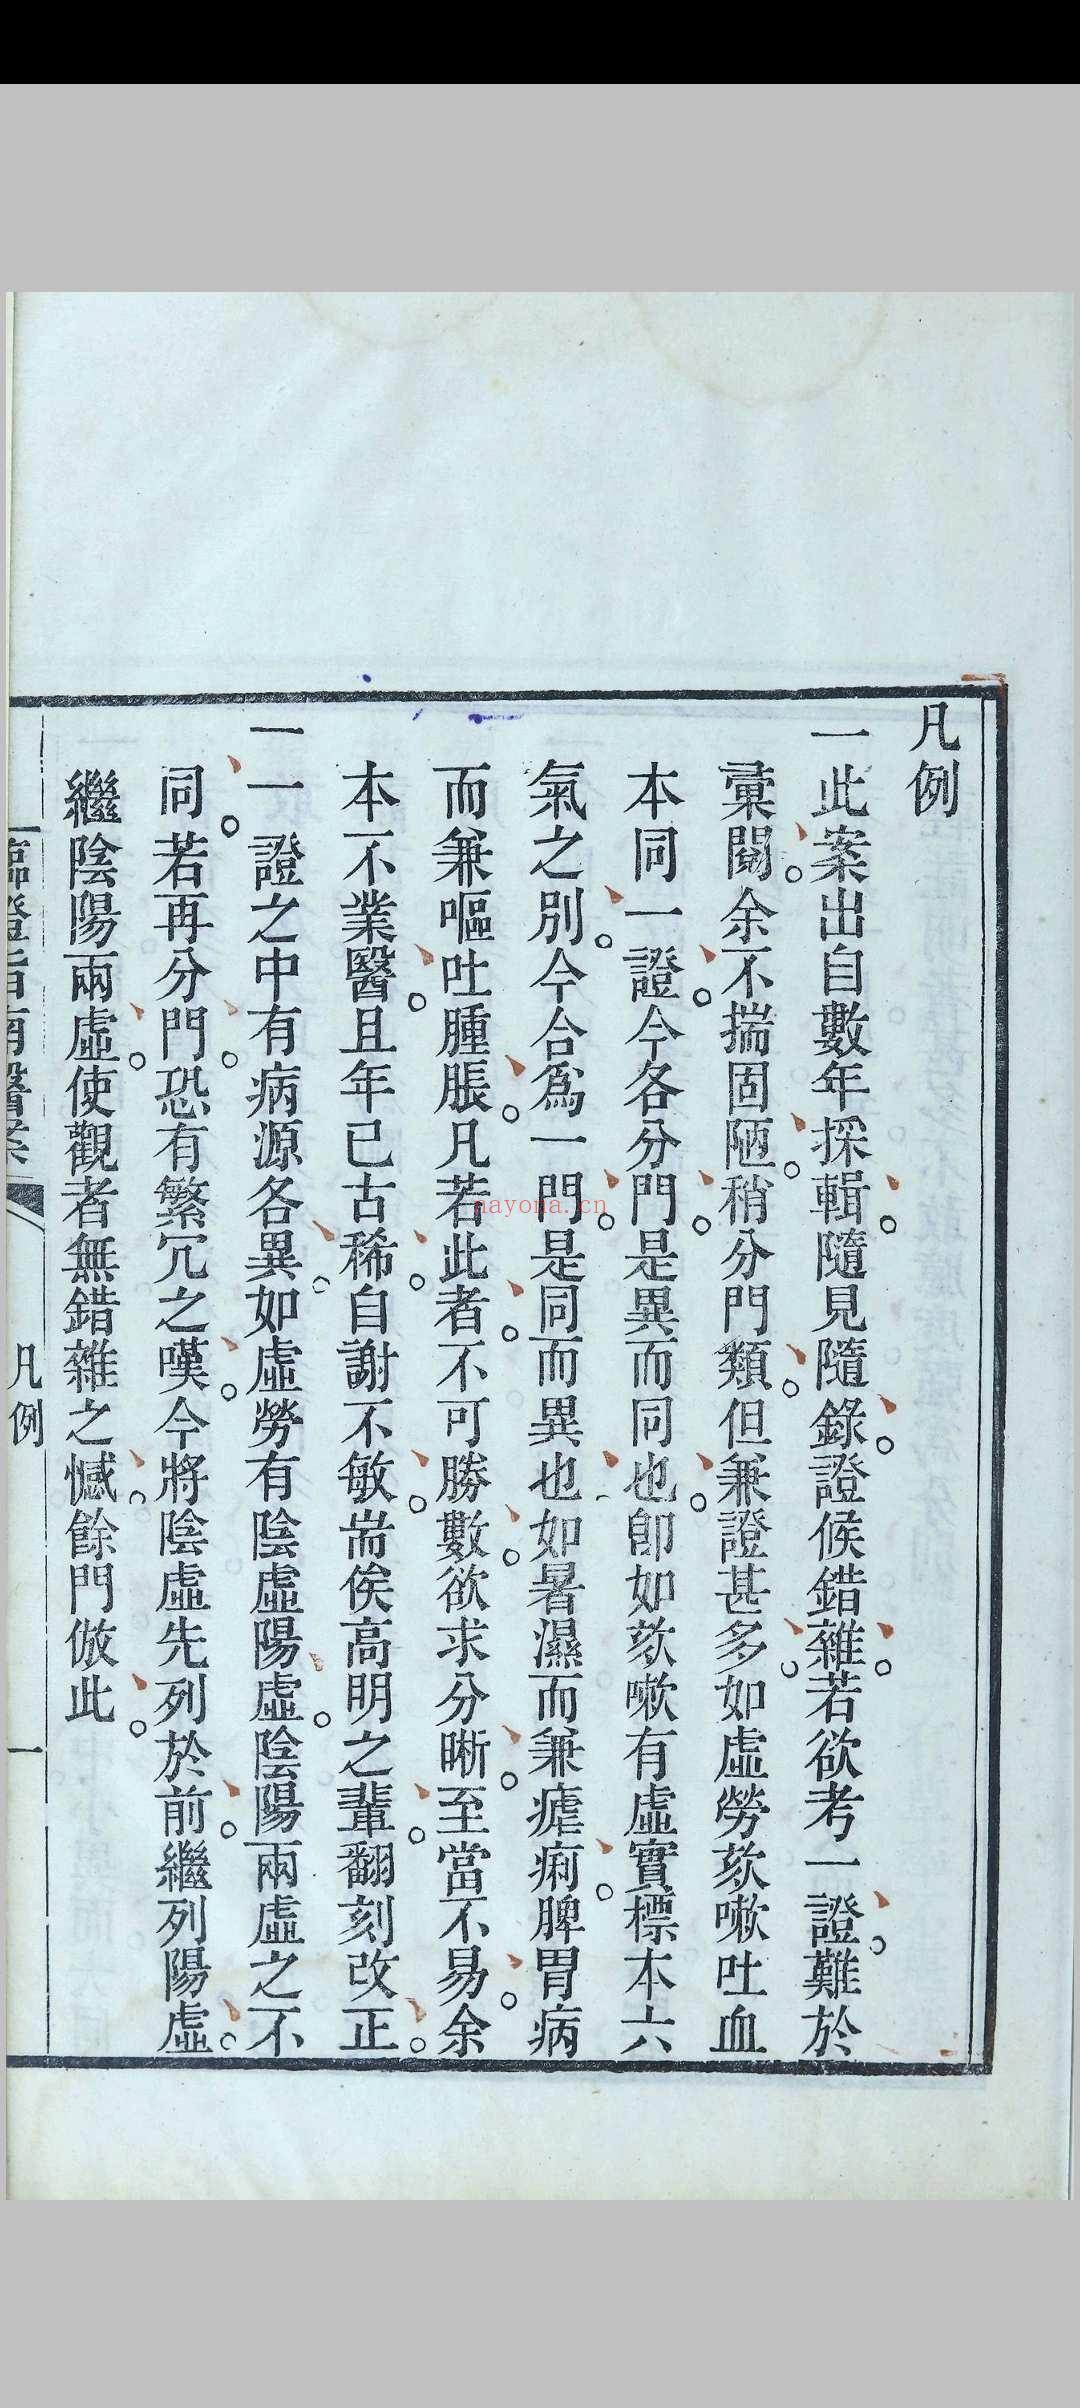 凡例
一此案出自數年採輯。隨見隨錄。證候錯雜。若欲考一證。難於
彙閱。余不揣固陋。稍分門類。但兼證甚多。如虛勞欬嗽吐血
本同一證。今各分門。是異而同也。卽如欬嗽有虛實標本六
氣之別。今合爲一門。是同而異也。如暑濕而兼瘧痢。脾胃病
而兼嘔吐腫脹。凡若此者。不可勝數。欲求分晰。至當不易。余
本不業醫。且年已古稀。自謝不敏。耑俟高明之輩。翻刻改正。
一一證之中有病源各異。如虛勞有陰虛陽虛。陰陽兩虛之不
同。若再分門。恐有繁冗之嘆。今將陰虛先列於前。繼列陽虛。
繼陰陽兩虛。使觀者無錯雜之憾。餘門倣此。
臨證指南醫案
凡例
一
nayona.cn